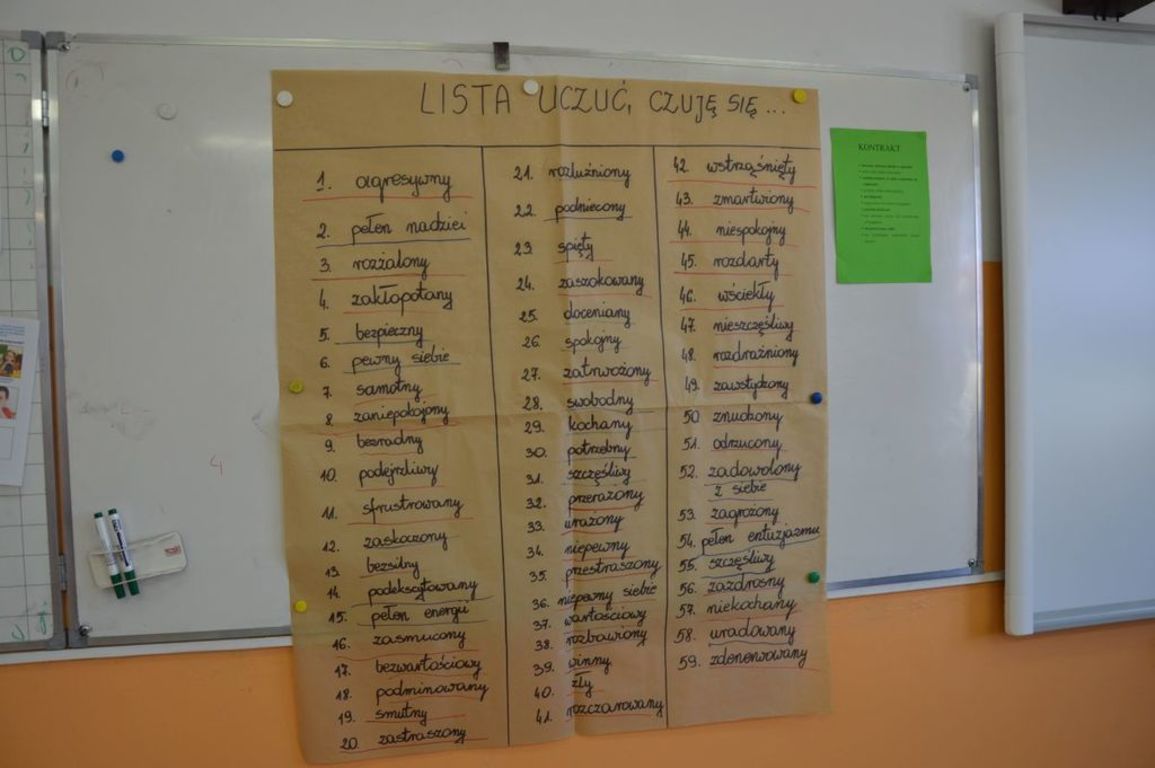 LISTA UCZUĆ, CZUJĘ SIĘ...
1. agresywny
2. pełen nadziei
3. rozżalony
4. zakłopotany
5. bezpieczny
6. pewny siebie
7. samotny
8. zaniepokojony
9. bezradny
10. podejrzliwy
11. sfrustrowany
12. zaskoczony
13. bezsilny
14. podekscytowany
15. pełen energii
16. zasmucony
17. bezwartościowy
18. podminowany
19. smutny
20. zastraszony
21. rozluźniony
22. podniecony
23. spięty
24. zaszokowany
25. doceniany
26. spokojny
27. zatrwożony
28. swobodny
29. kochany
30. potrzebny
31. szczęśliwy
32. przerażony
33. urażony
34. niepewny
35. przestraszony
36. niepewny siebie
37. wartościowy
38. rozbawiony
39. winny
40. zły
41. rozczarowany
42. wstrząśnięty
43. zmartwiony
44. niespokojny
45. rozdarty
46. wściekły
47. nieszczęśliwy
48. rozdrażniony
49. zawstydzony
50 znudzony
51. odrzucony
52. zadowolony
z siebie
53. zagrożony
54. pełen entuzjazmu
55. szczęśliwy
56. zazdrosny
57. niekochany
58. uradowany
59. zdenerwowany
KONTRAKT